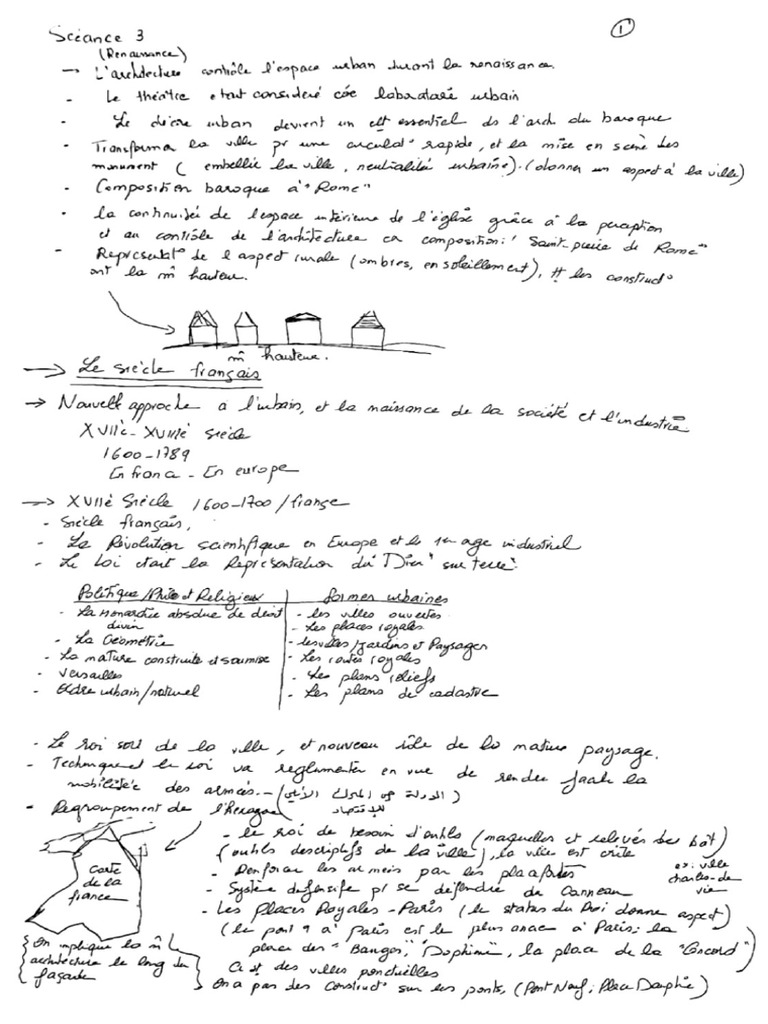 Scéance 3
1
(Renaissance)
→ L'architecture contrôle l'espace urban durant la renaissance.
- Le théâtre etait consideré cōe laboratoire urbain
- Le décore urban devient un elt essentiel ds l'arch du baroque
- Transforma la ville pr une circulat° rapide, et la mise en scène des
monument ( embellie la ville, neutralité urbaine). (donner un aspect à la ville)
- Composition baroque à "Rome"
- la continuité de l'espace intérieure de l'église grâce à la perception
et au contrôle de l'architecture composition: "Saint-pierre de Rome"
- Représentat° de l'aspect rurale (ombres, ensoleillement), # les construct°
ont la m̂ hauteur.
m̂ hauteur.
→ Le siècle français
→ Nouvelle approche à l'urbain, et la naissance de la société et l'industrie.
XVIIè - XVIIIè siècle
1600-1789
En france - En europe
→ XVIIè Siècle 1600-1700/france
- Siècle français,
- La Révolution scientifique en Europe et le 1er age industriel
- Le Loi etant la Représentation du "Dieu" sur terre.
Politique/Philo et Religieux formes urbaines
- La Monarchie absolue de droit - les villes ouvertes
divin - Les places royales
- La Géométrie - les villes/jardins et Paysages
- La nature construite et soumise - Les routes royales
- Versailles - Les plans reliefs
- Ordre urbain/naturel - Les plans de cadastre
- Le roi sort de la ville, et nouveau rôle de la nature paysage.
- Technique le roi va reglementer en vue de rendre facile la
mobilité des armés. (الدولة هي المحرك الأساسي
للإقتصاد)
- Regroupement de l'Hexagone
- le roi de besoin d'outils (maquettes et relevés de bât)
(outils descriptifs de la ville), la ville est crée
- Renforcer les armeis par les ex: ville
charles-de
vie
- Système defensife pr se defendre de
- Les Places Royales - Paris (le status du Roi donne aspect)
(le pont 9 à Paris est le plus ancie à Paris; la
place des "Vosges," "Dophine", la place de la "Concord")
Ce st des villes ponctuelles
On a pas des construct° sur les ponts, (Pont Neuf; Place Dauphie)
Carte
de la
france
On implique la m̂
architecture le long du
façade